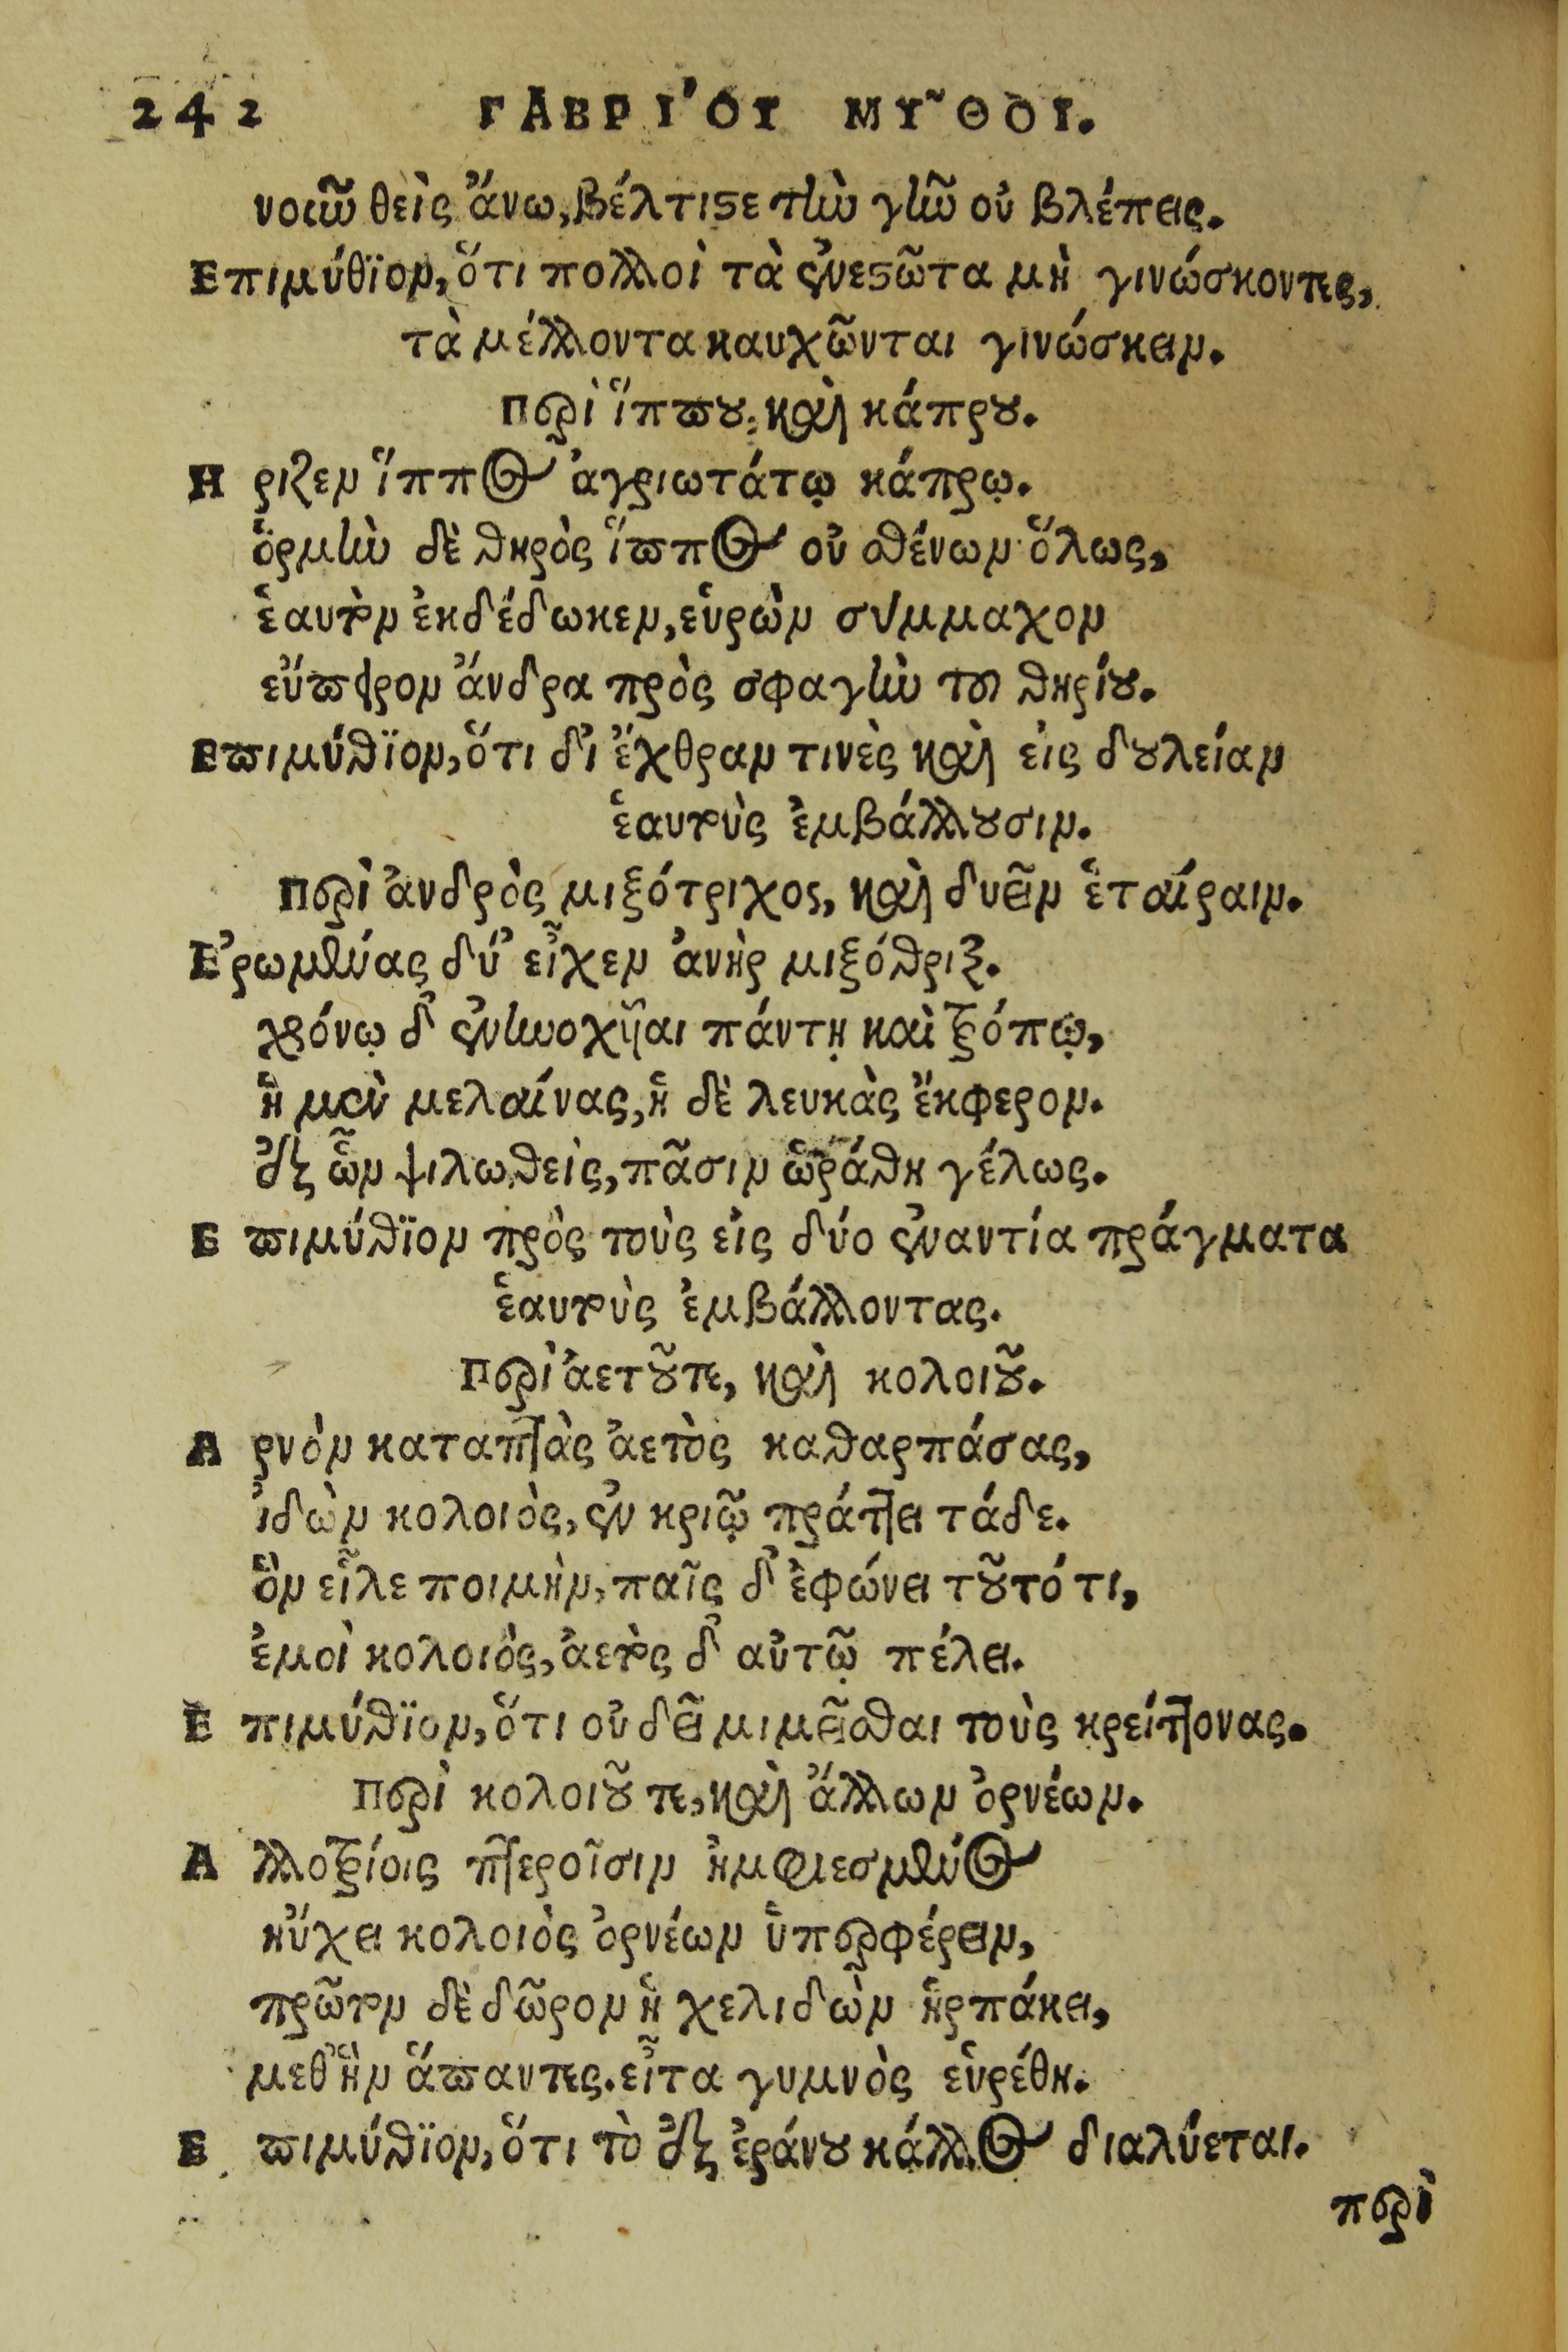 242 ΓΑΒΡΙ΄ΟΥ ΜΥ͂ΘΟΙ.
νοιῶ θεὶς ἄνω, βέλτιστε τὴν γῆν οὐ βλέπεις.
Επιμύθϊον, ὅτι πολλοὶ τὰ ἐνεστῶτα μὴ γινώσκοντες,
τὰ μέλλοντα καυχῶνται γινώσκειν.
Περὶ ἵππου καὶ κάπρου.
Η ριζεν ἵππος ἀγριωτάτῳ κάπρῳ.
ὁρμὴν δὲ θηρὸς ἵππος οὐ σθένων ὅλως,
ἑαυτὸν ἐκδέδωκεν, εὑρὼν σύμμαχον
εὔπορον ἄνδρα πρὸς σφαγὴν τοῦ θηρίου.
Επιμύθϊον, ὅτι δι ἔχθραν τινὲς καὶ εἰς δουλείαν
ἑαυτοὺς ἐμβάλλουσιν.
Περὶ ἀνδρὸς μιξότριχος, καὶ δυεῖν ἑταίραιν.
Ε᾿ρωμένας δύ᾿ εἶχεν ἀνὴρ μιξόθριξ.
χρόνῳ δ᾿ ἐνηνοχῆαι πάντῃ καὶ τρόπῳ,
ἡ μὲν μελαίνας, ἡ δὲ λευκὰς ἔκφερον.
ἐξ ὧν ψιλωθεὶς, πᾶσιν ὡράθη γέλως.
Ε πιμύθϊον πρὸς τοὺς εἰς δύο ἐναντία πράγματα
ἑαυτοὺς ἐμβάλλοντας.
Περὶ ἀετοῦ τε, καὶ κολοιοῦ.
Α ρνὸν καταπτὰς ἀετὸς καθαρπάσας,
ἰδὼν κολοιὸς, ἐν κριῷ πράττει τάδε.
ὃν εἷλε ποιμὴν, παῖς δ᾿ ἐφώνει τοῦτό τι,
ἐμοὶ κολοιὸς, ἀετὸς δ᾿ αὐτῷ πέλει.
Ε πιμύθϊον, ὅτι οὐ δεῖ μιμεῖσθαι τοὺς κρείττονας.
Περὶ κολοιοῦ τε, καὶ ἄλλων ὀρνέων.
Α λλοτρίοις πτεροῖσιν ἠμφιεσμένος
ηὔχει κολοιὸς ὀρνέων ὑπερφέρειν,
πρῶτον δὲ δῶρον ἡ χελιδὼν ἡρπάκει,
μεθ᾿ ἣν ἅπαντες. εἶτα γυμνὸς εὑρέθη.
Ε πιμύθϊον, ὅτι τὸ ἐξ ἐράνου κάλλος διαλύεται.
περὶ